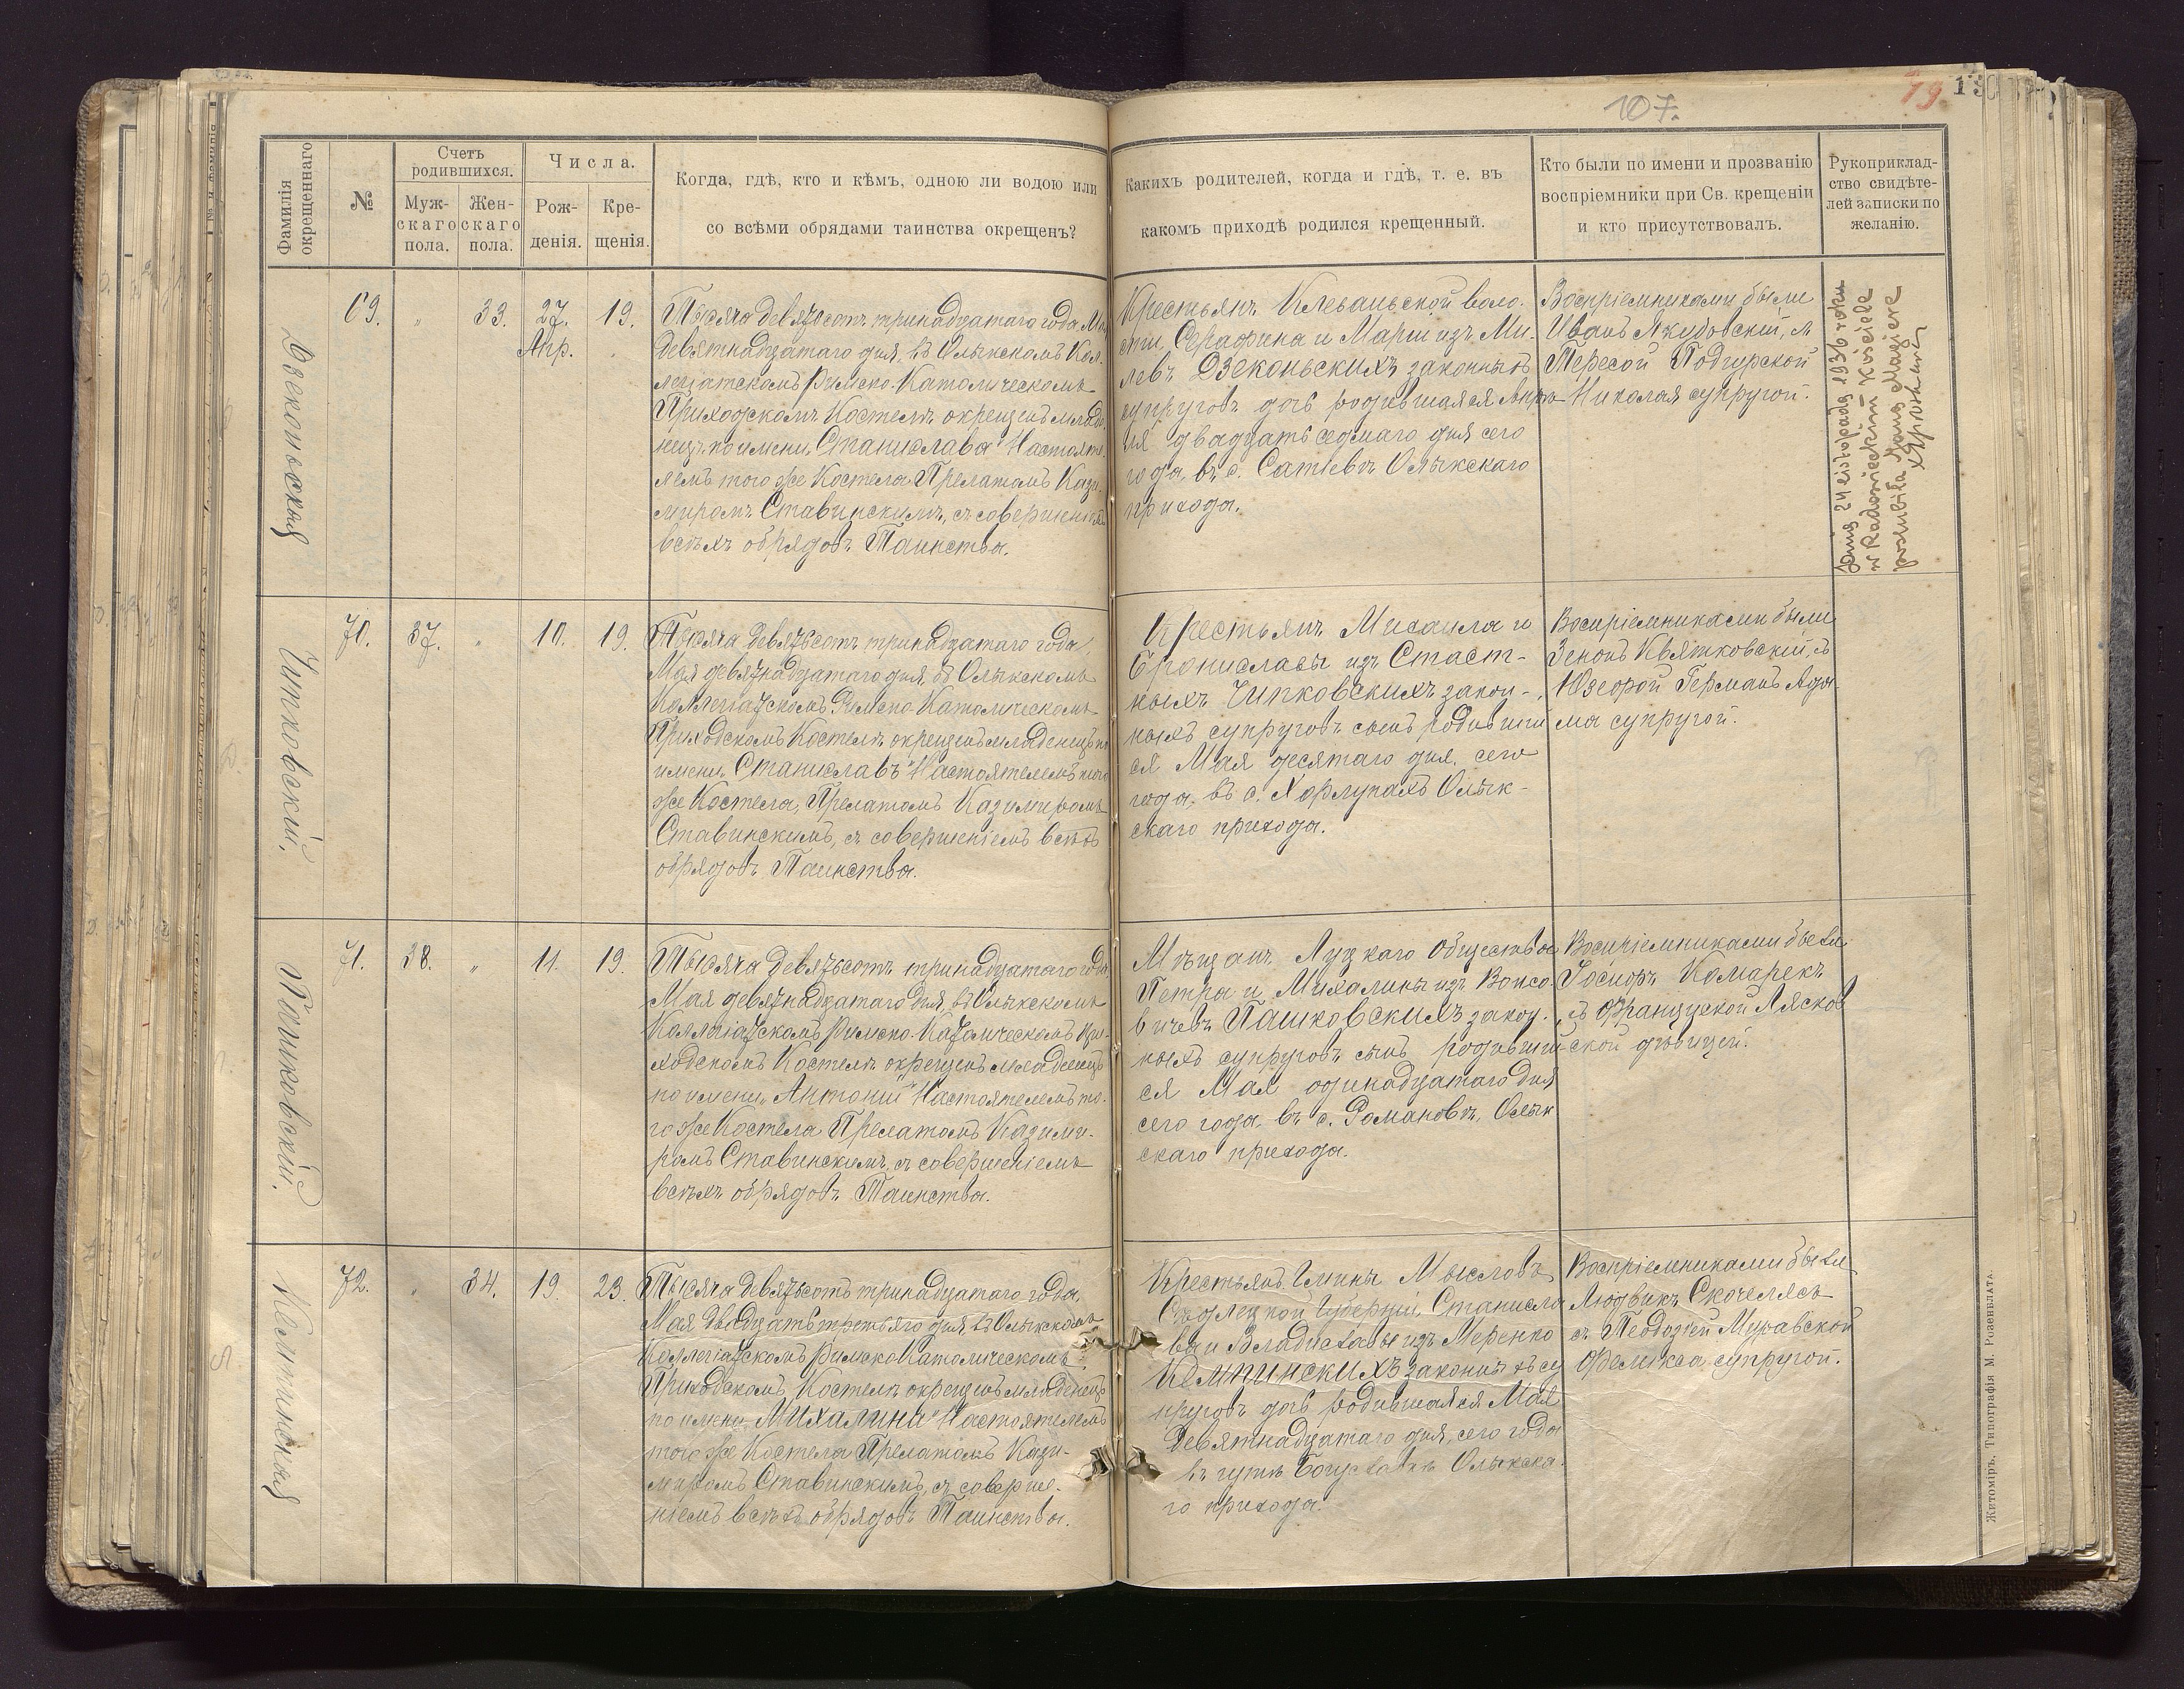 107.
19
Фамилія
окрещеннаго
№
Счетъ
родившихся.
Муж-
скаго
пола.
Жен-
скаго
пола.
Числа.
Рож-
денія.
Кре-
щенія.
Когда, гдѣ, кто и кѣмъ, одною ли водою или
со всѣми обрядами таинства окрещенъ?
Какихъ родителей, когда и гдѣ, т. е. въ
какомъ приходѣ родился крещенный.
Кто были по имени и прозванію
воспріемники при Св. крещеніи
и кто присутствовалъ.
Рукоприклад-
ство свидѣте-
лей записки по
желанію.
Дзеконьская
69.
"
33.
27.
Апр.
19.
"
Тысяча девятьсотъ тринадцатаго года, Мая
девятнадцатаго дня, въ Олыкскомъ Кол-
легіатскомъ Римско-Католическомъ
Приходскомъ Костелѣ окрещенъ младе-
нецъ по имени „Станислава" Настояте-
лемъ того же Костела Прелатомъ Кази-
миромъ Ставинскимъ, съ совершеніемъ
всѣхъ обрядовъ Таинства.
Крестьянъ Клеваньской воло-
сти, Серафина и Маріи изъ Ми-
левъ Дзеконьскихъ законныхъ
супруговъ дочь родившаяся Апрѣ-
ля двадцать седмаго дня сего
года, въ с. Сатіевѣ Олыкскаго
прихода.
Воспріемниками были
Иванъ Якубовскій, съ
Тересой Подгурской
Николая супругой.
Dnia 24 listopada 1936 roku
w Radowieckim Kościele
poślubiła Jana Magiere
Чипковскій.
70.
37.
"
10.
19.
Тысяча девятьсотъ тринадцатаго года,
Мая девятнадцатаго дня, въ Олыкскомъ
Коллегіатскомъ Римско-Католическомъ
Приходскомъ Костелѣ окрещенъ младенецъ по
имени „Станиславъ" Настоятелемъ того
же Костела, Прелатомъ Казимиромъ
Ставинскимъ, съ совершеніемъ всѣхъ
обрядовъ Таинства.
Крестьянъ Михаила и
Брониславы изъ Стаст-
ныхъ Чипковскихъ закон-
ныхъ супруговъ сынъ родивший
ся Мая десятаго дня, сего
года, въ с. Хорлупахъ Олык-
скаго прихода.
Воспріемниками были
Зенонъ Квятковскій, съ
Юзефой Германъ Ада-
ма супругой.
Пашковскій.
71.
38.
"
11.
19.
Тысяча девятьсотъ тринадцатаго года
Мая девятнадцатаго дня, въ Олыкскомъ
Коллегіатскомъ Римско-Католическомъ При-
ходскомъ Костелѣ окрещенъ младенецъ
по имени „Антоній" Настоятелемъ то-
го же Костела Прелатомъ Казими-
ромъ Ставинскимъ, съ совершеніемъ
всѣхъ обрядовъ Таинства.
Мѣщанъ Луцкаго Общества
Петра и Михалины изъ Вонсо-
вичевъ Пашковскихъ закон-
ныхъ супруговъ сынъ родивший-
ся Мая одинадцатаго дня
сего года, въ с. Романовѣ, Олык
скаго прихода.
Воспріемниками были
Іосифъ Комарекъ
съ Францишкой Лясков
ской дѣвицей.
72.
"
34.
19.
23.
Тысяча девятьсотъ тринадцатаго года,
Мая двадцать третьяго дня, въ Олыкскомъ
Коллегіатскомъ Римско-Католическомъ
Приходскомъ Костелѣ окрещенъ младенецъ
по имени „Михалина" Настоятелемъ
того же Костела Прелатомъ Кази-
миромъ Ставинскимъ, съ соверше-
ніемъ всѣхъ обрядовъ Таинства.
Крестьянъ Гмины Мысловъ
Сѣдлецкой Губерніи Станисла
ва и Владиславы изъ Меренко
законныхъ су
пруговъ дочь родившаяся Мая
девятнадцатаго дня, сего года
въ гутѣ Богуславкѣ Олыкска-
го прихода.
Воспріемниками были
Людвикъ Скочелясъ
съ Теодозіей Муравской
Феликса супругой.
Житоміръ, Типографія М. Розенблата.